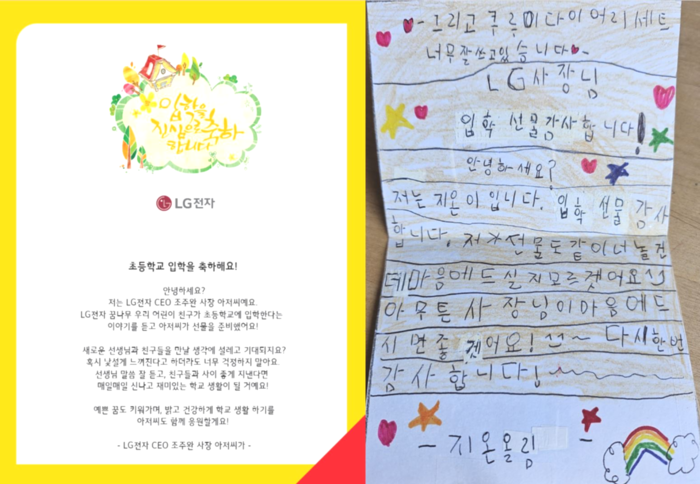 입학을
진심으로 축하
합니다
LG전자
초등학교 입학을 축하해요!
안녕하세요?
저는 LG전자 CEO 조주완 사장 아저씨예요.
LG전자 꿈나무 우리 어린이 친구가 초등학교에 입학한다는
이야기를 듣고 아저씨가 선물을 준비했어요!
새로운 선생님과 친구들을 만날 생각에 설레고 기대되지요?
혹시 낯설게 느껴진다고 하더라도 너무 걱정하지 말아요.
선생님 말씀 잘 듣고, 친구들과 사이 좋게 지낸다면
매일매일 신나고 재미있는 학교 생활이 될 거예요!
예쁜 꿈도 키워가며, 밝고 건강하게 학교 생활 하기를
아저씨도 함께 응원할게요!
- LG전자 CEO 조주완 사장 아저씨가 -
- 그리고 쿠루미다이어리세트
너무잘쓰고있습니다
LG사장님
입학 선물감사합니다!
안녕하세요?
저는 지온이입니다. 입학 선물 감사
합니다. 저*선물도같이너놀건
데마음에드실지모르겟어요
아무튼사장님이마음에드
시면좋겠어요! ~ 다시한번
감사합니다!
- 지온올림 -